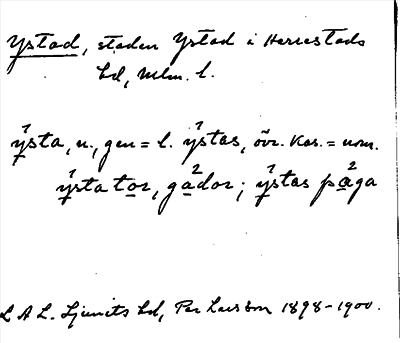 Ystad, staden Ystad i Herrestads
hd, Mlm. l.
ysta, n., gen = l. ystas, övr. Kas. = nom.
ysta tor, gador; ystas påga
L A L. Ljunits hd, Per Larsson 1898-1900.